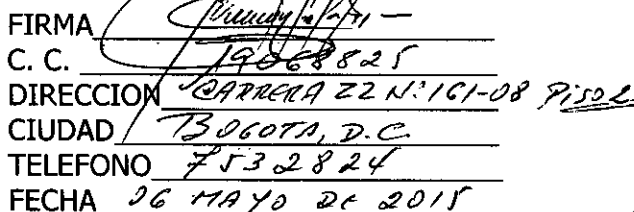 FIRMA
C. C. 19068825
DIRECCION CARRERA 22 N: 161-08 PISO 2
CIUDAD BOGOTA, D.C.
TELEFONO 7532824
FECHA 06 MAYO DE 2015